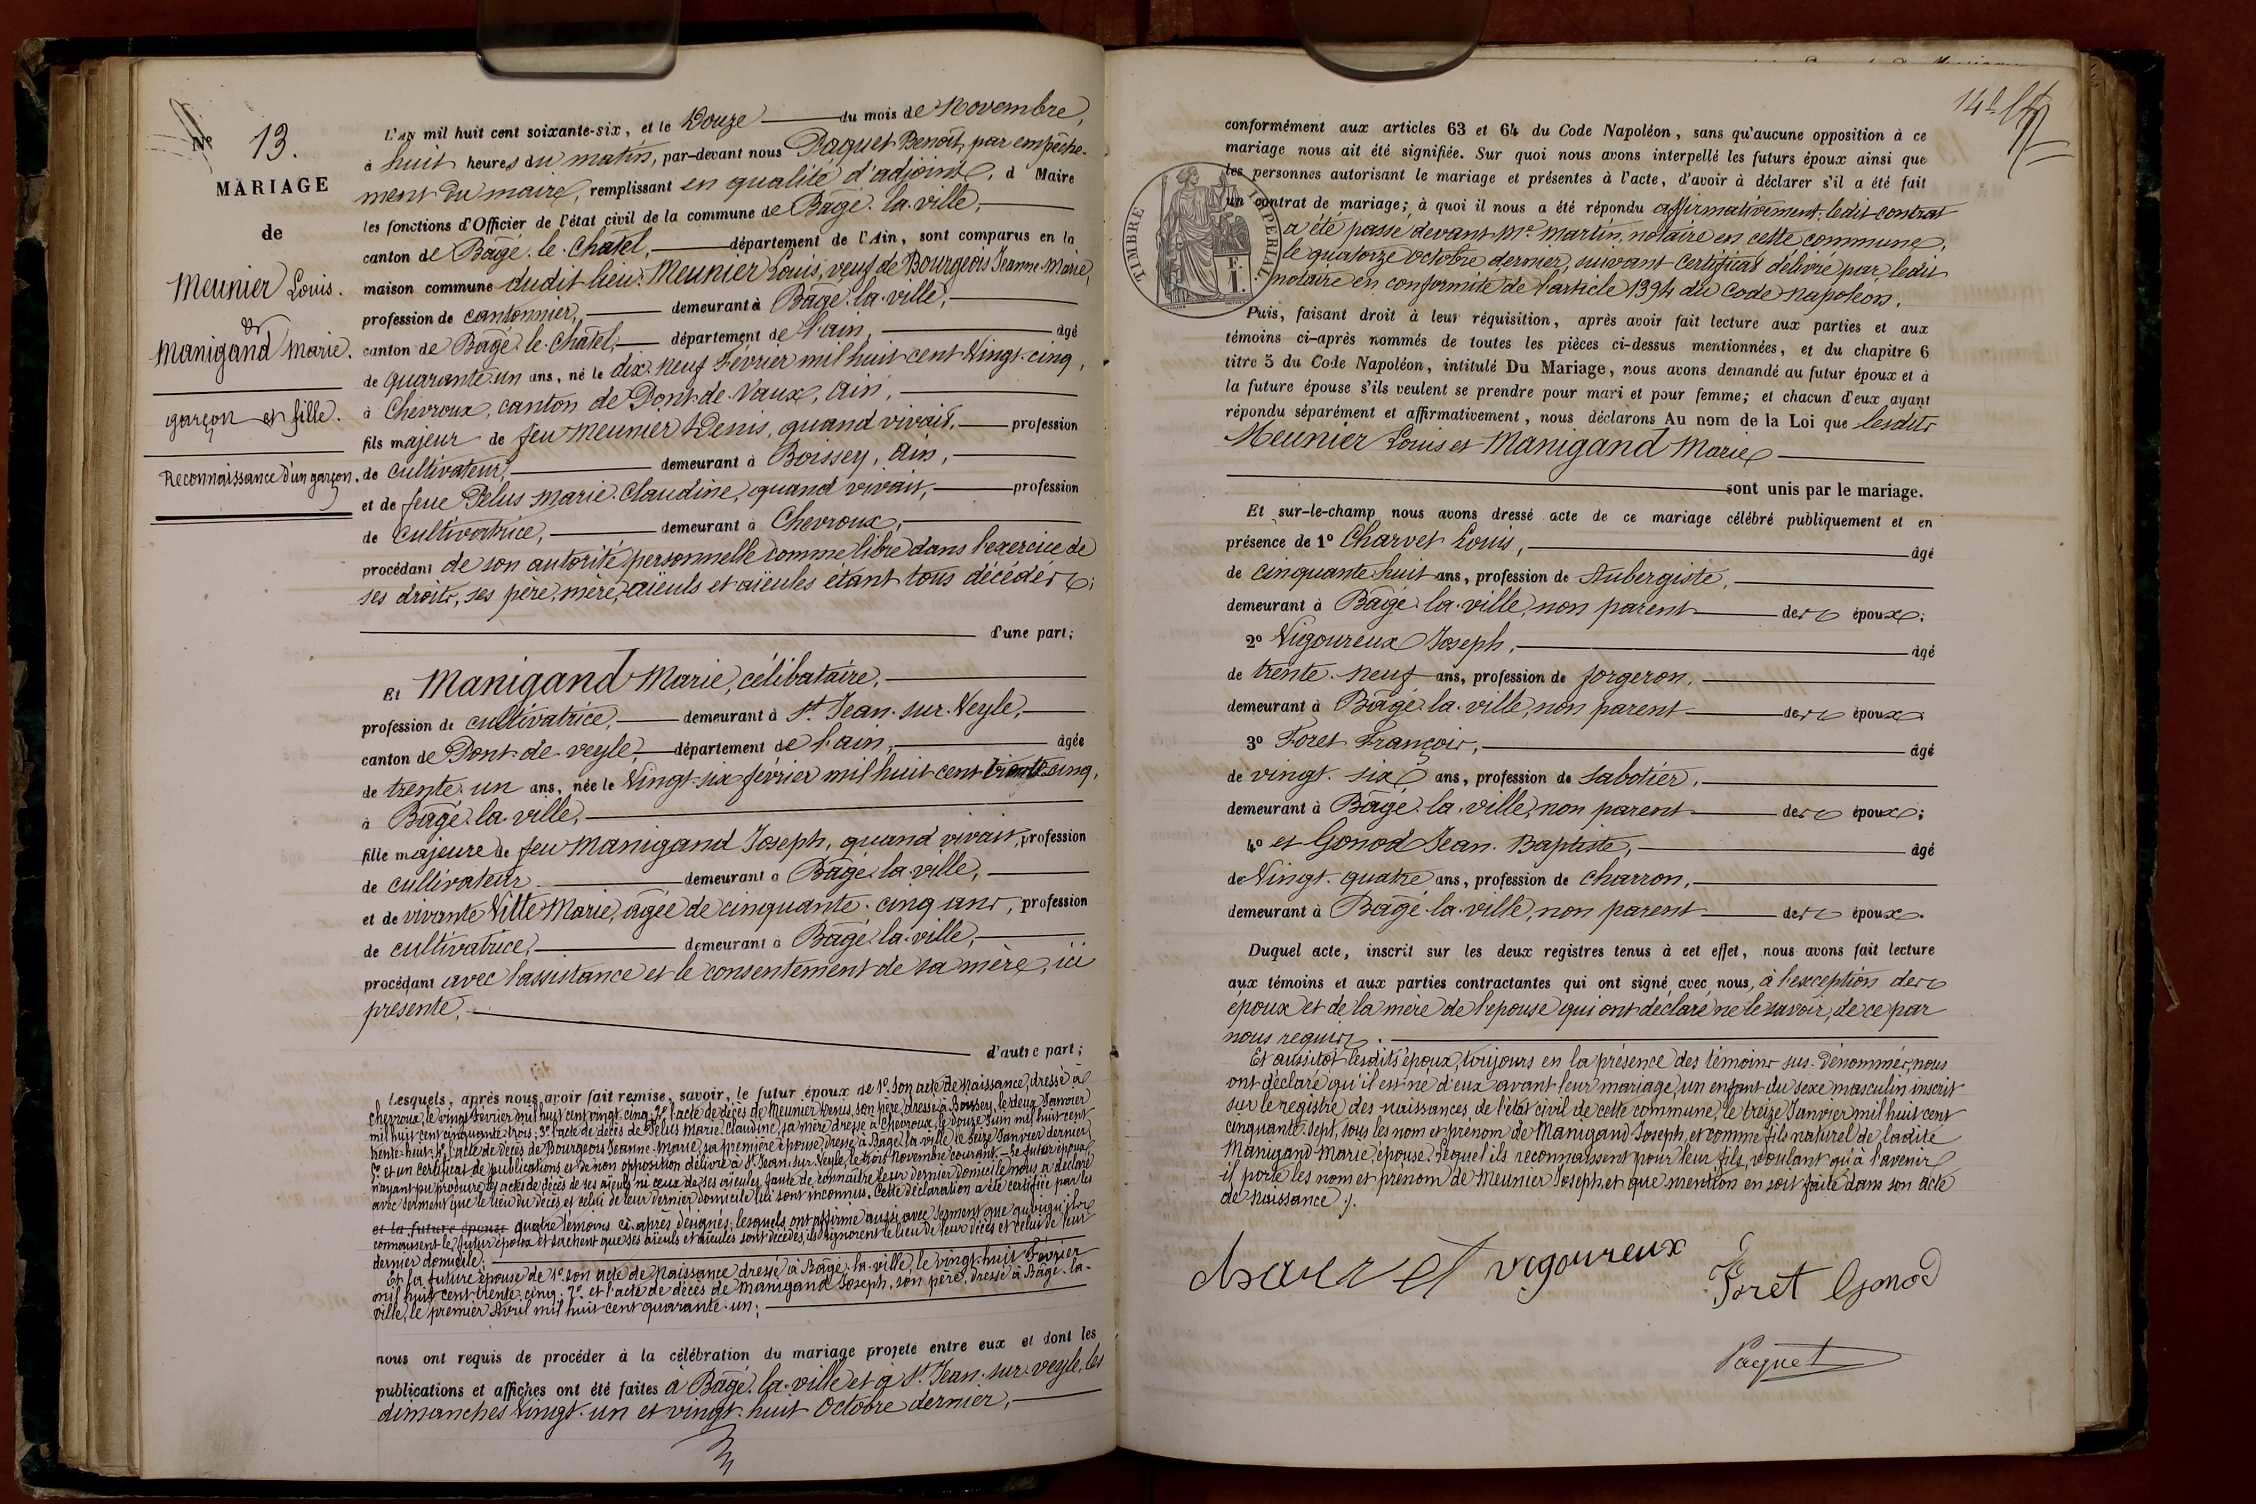 Nº 13.
MARIAGE
de
Meunier Louis.
&
Manigand Marie.
garçon et fille.
Reconnaissance d'un garçon.
L'AN mil huit cent soixante-six, et le Douze du mois de Novembre,
à huit heures du matin, par-devant nous Paquet Benoît, par empêche-
ment du maire, remplissant en qualité d'adjoint, d Maire
les fonctions d'Officier de l'état civil de la commune de Bâgé-la-ville,
canton de Bâgé-le-Châtel, département de l'Ain, sont comparus en la
maison commune dudit lieu: Meunier Louis, veuf de Bourgeois Jeanne-Marie,
profession de cantonnier, demeurant à Bâgé-la-ville,
canton de Bâgé-le-Châtel, département de l'ain, âgé
de quarante-un ans, né le dix-neuf Février mil huit cent vingt-cinq,
à Chevroux, canton de Pont-de-Vaux, ain,
fils majeur de feu Meunier Denis, quand vivait, profession
de cultivateur, demeurant à Boissey, ain,
et de feue Pelus Marie-Claudine, quand vivait, profession
de cultivatrice, demeurant à Chevroux,
procédant de son autorité personnelle comme libre dans l'exercice de
ses droits, ses père, mère, aïeuls et aïeules étant tous décédés;
d'une part;
Et Manigand Marie, célibataire,
profession de cultivatrice, demeurant à St Jean-sur-Veyle,
canton de Pont-de-veyle, département de l'ain, âgée
de trente-un ans, née le Vingt-six février mil huit cent trente-cinq,
à Bâgé-la-ville,
fille majeure de feu Manigand Joseph, quand vivait, profession
de cultivateur demeurant à Bâgé-la-ville,
et de vivante Vitte Marie, âgée de cinquante-cinq ans, profession
de cultivatrice, demeurant à Bâgé-la-ville,
procédant avec l'assistance et le consentement de sa mère, ici
présente,
d'autre part;
Lesquels, après nous avoir fait remise, savoir, le futur époux de 1º. Son acte de Naissance, dressé à
Chevroux, le vingt Février mil huit cent vingt-cinq; 2º. l'acte de décès de Meunier Denis, son père, dressé à Boissey, le deux Janvier
mil huit cent cinquante-trois; 3º. l'acte de décès de Pelus Marie-Claudine, sa mère dressé à Chevroux, le douze Juin mil huit cent
trente-huit; 4º. l'acte de décès de Bourgeois Jeanne-Marie, sa première épouse, dressé à Bâgé-la-ville le seize Janvier dernier;
5º. et un certificat de publications et de non opposition délivré à St Jean-sur-Veyle, le trois Novembre courant. — Le futur époux
n'ayant pu produire les actes de décès de ses aïeuls ni ceux de ses aïeules, faute de connaître leur dernier domicile, nous a déclaré
avec serment que le lieu du décès et celui de leur dernier domicile lui sont inconnus. Cette déclaration a été certifiée par les
et la future épouse quatre témoins ci-après désignés, lesquels ont affirmé aussi avec serment que quoiqu'ils
connaissent le futur époux et sachent que ses aïeuls et aïeules sont décédés, ils ignorent le lieu de leur décès et celui de leur
dernier domicile;
Et la future épouse de 1º. son acte de Naissance dressé à Bâgé-la-ville, le vingt-huit Février
mil huit cent trente-cinq; 2º. et l'acte de décès de Manigand Joseph, son père, dressé à Bâgé-la-
ville, le premier Avril mil huit cent quarante-un;
nous ont requis de procéder à la célébration du mariage projeté entre eux et dont les
publications et affiches ont été faites à Bâgé-la-ville et à St Jean-sur-veyle, les
dimanches vingt-un et vingt-huit Octobre dernier,
conformément aux articles 63 et 64 du Code Napoléon, sans qu'aucune opposition à ce
mariage nous ait été signifiée. Sur quoi nous avons interpellé les futurs époux ainsi que
les personnes autorisant le mariage et présentes à l'acte, d'avoir à déclarer s'il a été fait
un contrat de mariage; à quoi il nous a été répondu affirmativement, ledit contrat
a été passé devant Me. Martin, notaire en cette commune,
le quatorze octobre dernier, suivant certificat délivré par ledit
notaire en conformité de l'article 1394 du Code Napoléon.
TIMBRE IMPÉRIAL
F.
1.
Puis, faisant droit à leur réquisition, après avoir fait lecture aux parties et aux
témoins ci-après nommés de toutes les pièces ci-dessus mentionnées, et du chapitre 6
titre 5 du Code Napoléon, intitulé Du Mariage, nous avons demandé au futur époux et à
la future épouse s'ils veulent se prendre pour mari et pour femme; et chacun d'eux ayant
répondu séparément et affirmativement, nous déclarons Au nom de la Loi que lesdits
Meunier Louis et Manigand Marie
sont unis par le mariage.
Et sur-le-champ nous avons dressé acte de ce mariage célébré publiquement et en
présence de 1º Charvet Louis, âgé
de cinquante-huit ans, profession de Aubergiste,
demeurant à Bâgé-la-ville, non parent des époux;
2º Vigoureux Joseph, âgé
de trente-neuf ans, profession de forgeron,
demeurant à Bâgé-la-ville, non parent des époux;
3º Foret François, âgé
de vingt-six ans, profession de sabotier,
demeurant à Bâgé-la-ville, non parent des époux;
4º et Gonod Jean-Baptiste, âgé
de Vingt-quatre ans, profession de charron,
demeurant à Bâgé-la-ville, non parent des époux.
Duquel acte, inscrit sur les deux registres tenus à cet effet, nous avons fait lecture
aux témoins et aux parties contractantes qui ont signé avec nous, à l'exception des
époux et de la mère de l'épouse qui ont déclaré ne le savoir, de ce par
nous requis.
Et aussitôt lesdits époux, toujours en la présence des témoins sus-dénommés, nous
ont déclaré qu'il est né d'eux avant leur mariage, un enfant du sexe masculin inscrit
sur le registre des naissances de l'état civil de cette commune, le treize Janvier mil huit cent
cinquante-sept, sous les nom et prénom de Manigand Joseph, et comme fils naturel de ladite
Manigand Marie, épouse. Lequel ils reconnaissent pour leur fils, voulant qu'à l'avenir
il porte les nom et prénom de Meunier Joseph, et que mention en soit faite dans son acte
de naissance./.
Charvet Vigoureux
Foret Gonod
Paquet